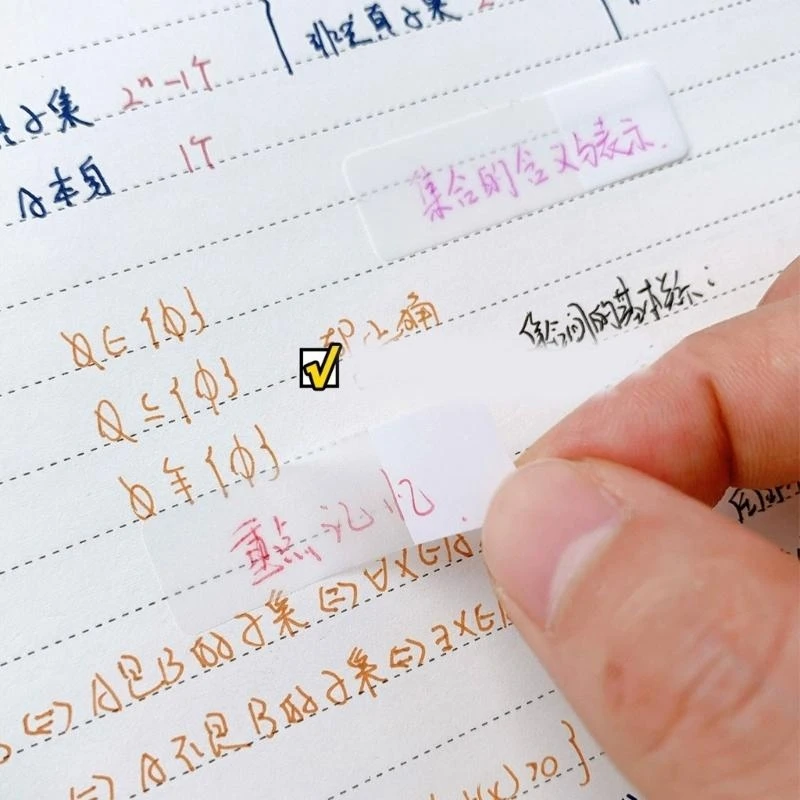 非空真子集 2
子集 2ⁿ-1个
A本身 1个
集合的含义与表示.
∅∈{∅} 都正确
∅⊆{∅}
∅⫋{∅}
集合间的基本关系:
重点记忆.
⇔A是B的子集⇔∀x∈A
⇔A不是B的子集⇔∃x∈A
(x)>0}